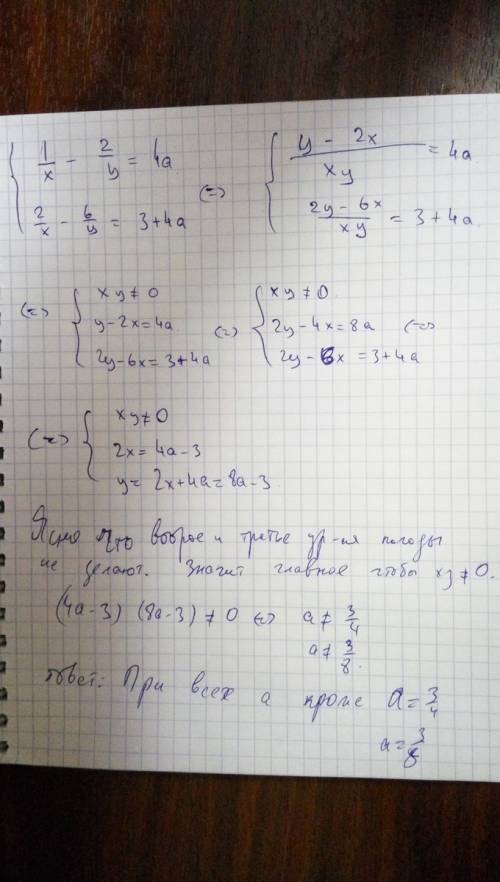 { 1/x - 2/y = 4a (=) { (y - 2x)/(xy) = 4a
2/x - 6/y = 3+4a (2y - 6x)/(xy) = 3+4a
(=) { xy ≠ 0 (=) { xy ≠ 0
y-2x=4a 2y-4x=8a (=)
2y-6x=3+4a 2y-6x=3+4a
(=) { xy≠0
2x=4a-3
y=2x+4a=8a-3
Ясно что второе и третье ур-ия погоды
не делают. Значит главное чтобы xy≠0.
(4a-3)(8a-3)≠0 (=) a≠3/4
a≠3/8.
Ответ: При всех a кроме a=3/4
a=3/8